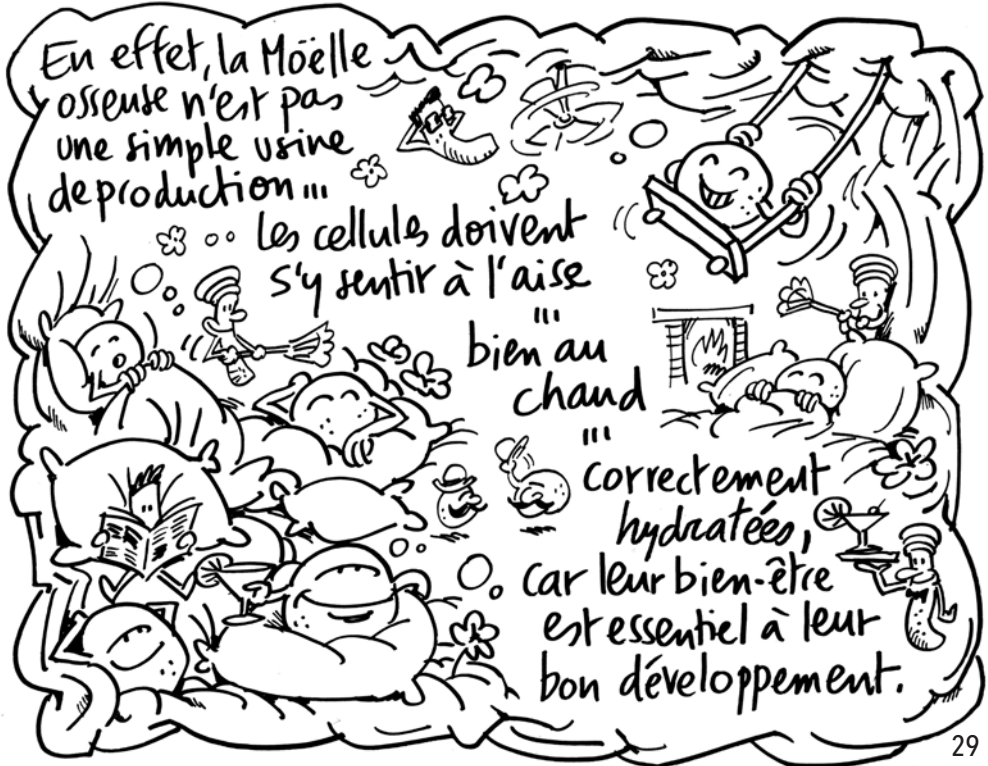 En effet, la Möelle
osseuse n'est pas
une simple usine
de production...
les cellules doivent
s'y sentir à l'aise
...
bien au
chaud
...
correctement
hydratées,
car leur bien-être
est essentiel à leur
bon développement.
29